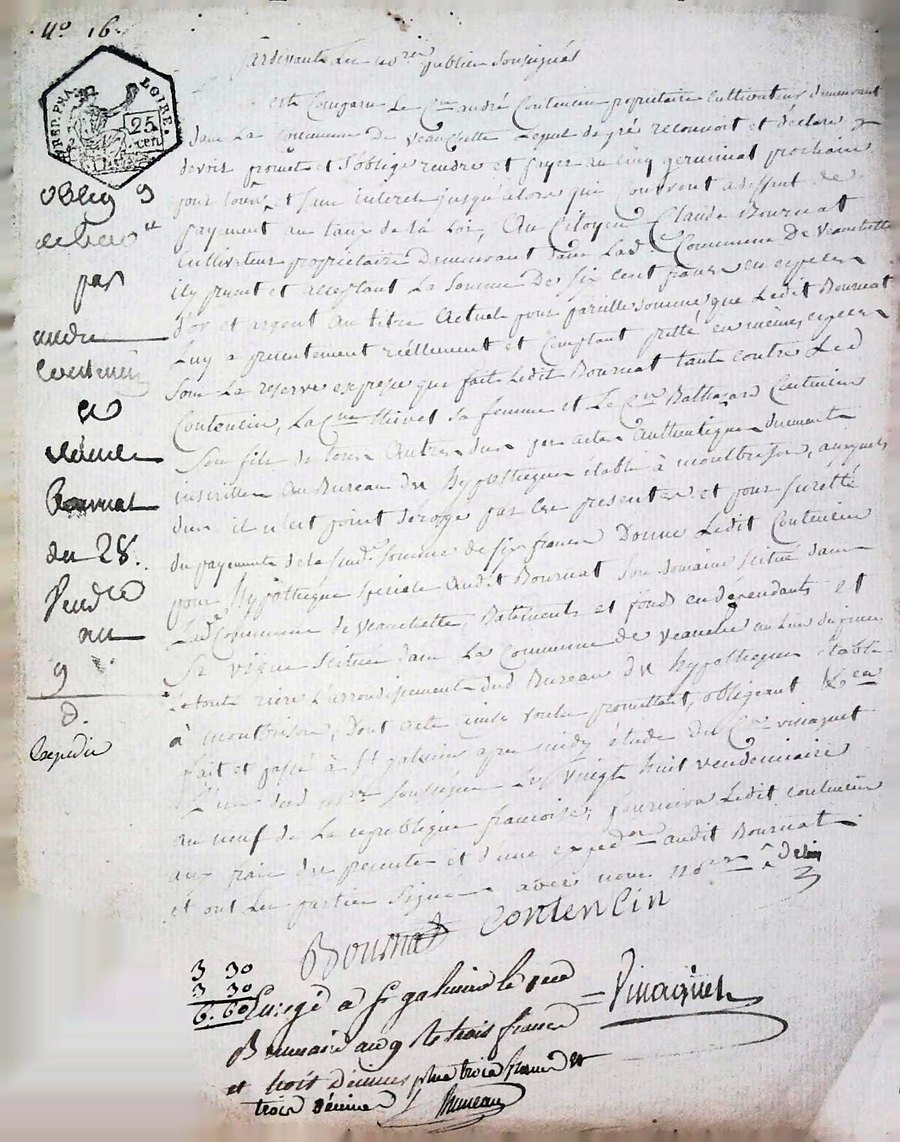 N° 16.
RÉP. FRA.
LOIRE.
25
cen
oblig
par
andre
Contencin
a
claude
Bournat
du 28.
Vendre
an
9
D.
Expedié
Pardevant Les no.res publics Soussignés
est Comparu Le C.en andré Contencin proprietaire Cultivateur demeurant
dans La Commune De veauchette Lequel de gré reconnoit et declare
devoir promet et s'oblige rendre et payer au cinq germinal prochain
pour tout, et sans interet jusqu'alors qui Courront a deffaut de
payement au taux de la Loi, Au Citoyen Claude Bournat
Cultivateur proprietaire Demeurant dans Lad.e Commune De veauchette
icy present et acceptant La Somme De six cent francs en especes
d'or et argent au titre actuel pour pareille somme que Ledit Bournat
Luy a presentement réellement et Comptant pretté en mêmes especes
sous La reserve expresse que fait Ledit Bournat tant contre Led
Contencin, La C.ne sa femme et Le C.en Balthazard Contencin
son fils de tous autres dus par actes authentiques dument
inscrits au Bureau des hypotheques établi à montbrison, auxquels
dus il n'est point derogé par Les presentes et pour sureté
du payement de la susd. somme de six francs Donne Ledit Contencin
pour hypothéque speciale audit Bournat son domaine scitué dans
Lad.e Commune de veauchette, Batiments et fonds en dépendants et
sa vigne scituée dans La Commune de veauche au Lieu
Le tout riere L'arrondissement dud Bureau des hypotheques établi
à montbrison, Dont acte ainsi voulu promettant, obligeant &.ca
fait et passé à S.t galmier apres midy étude du C.en vinagnet
L'un desd no.res soussignés Le vingt huit vendemiaire
an neuf de La republique francoise, fournira Ledit contencin
aux frais des presentes et d'une exped.on audit Bournat
et ont Les parties signé avec nous no.res
Bournat Contencin
3 30
3 30
6. 60
Enregé a S.t galmier le
Brumaire an 9 Re trois francs
et trois décimes plus trois francs et
trois décimes